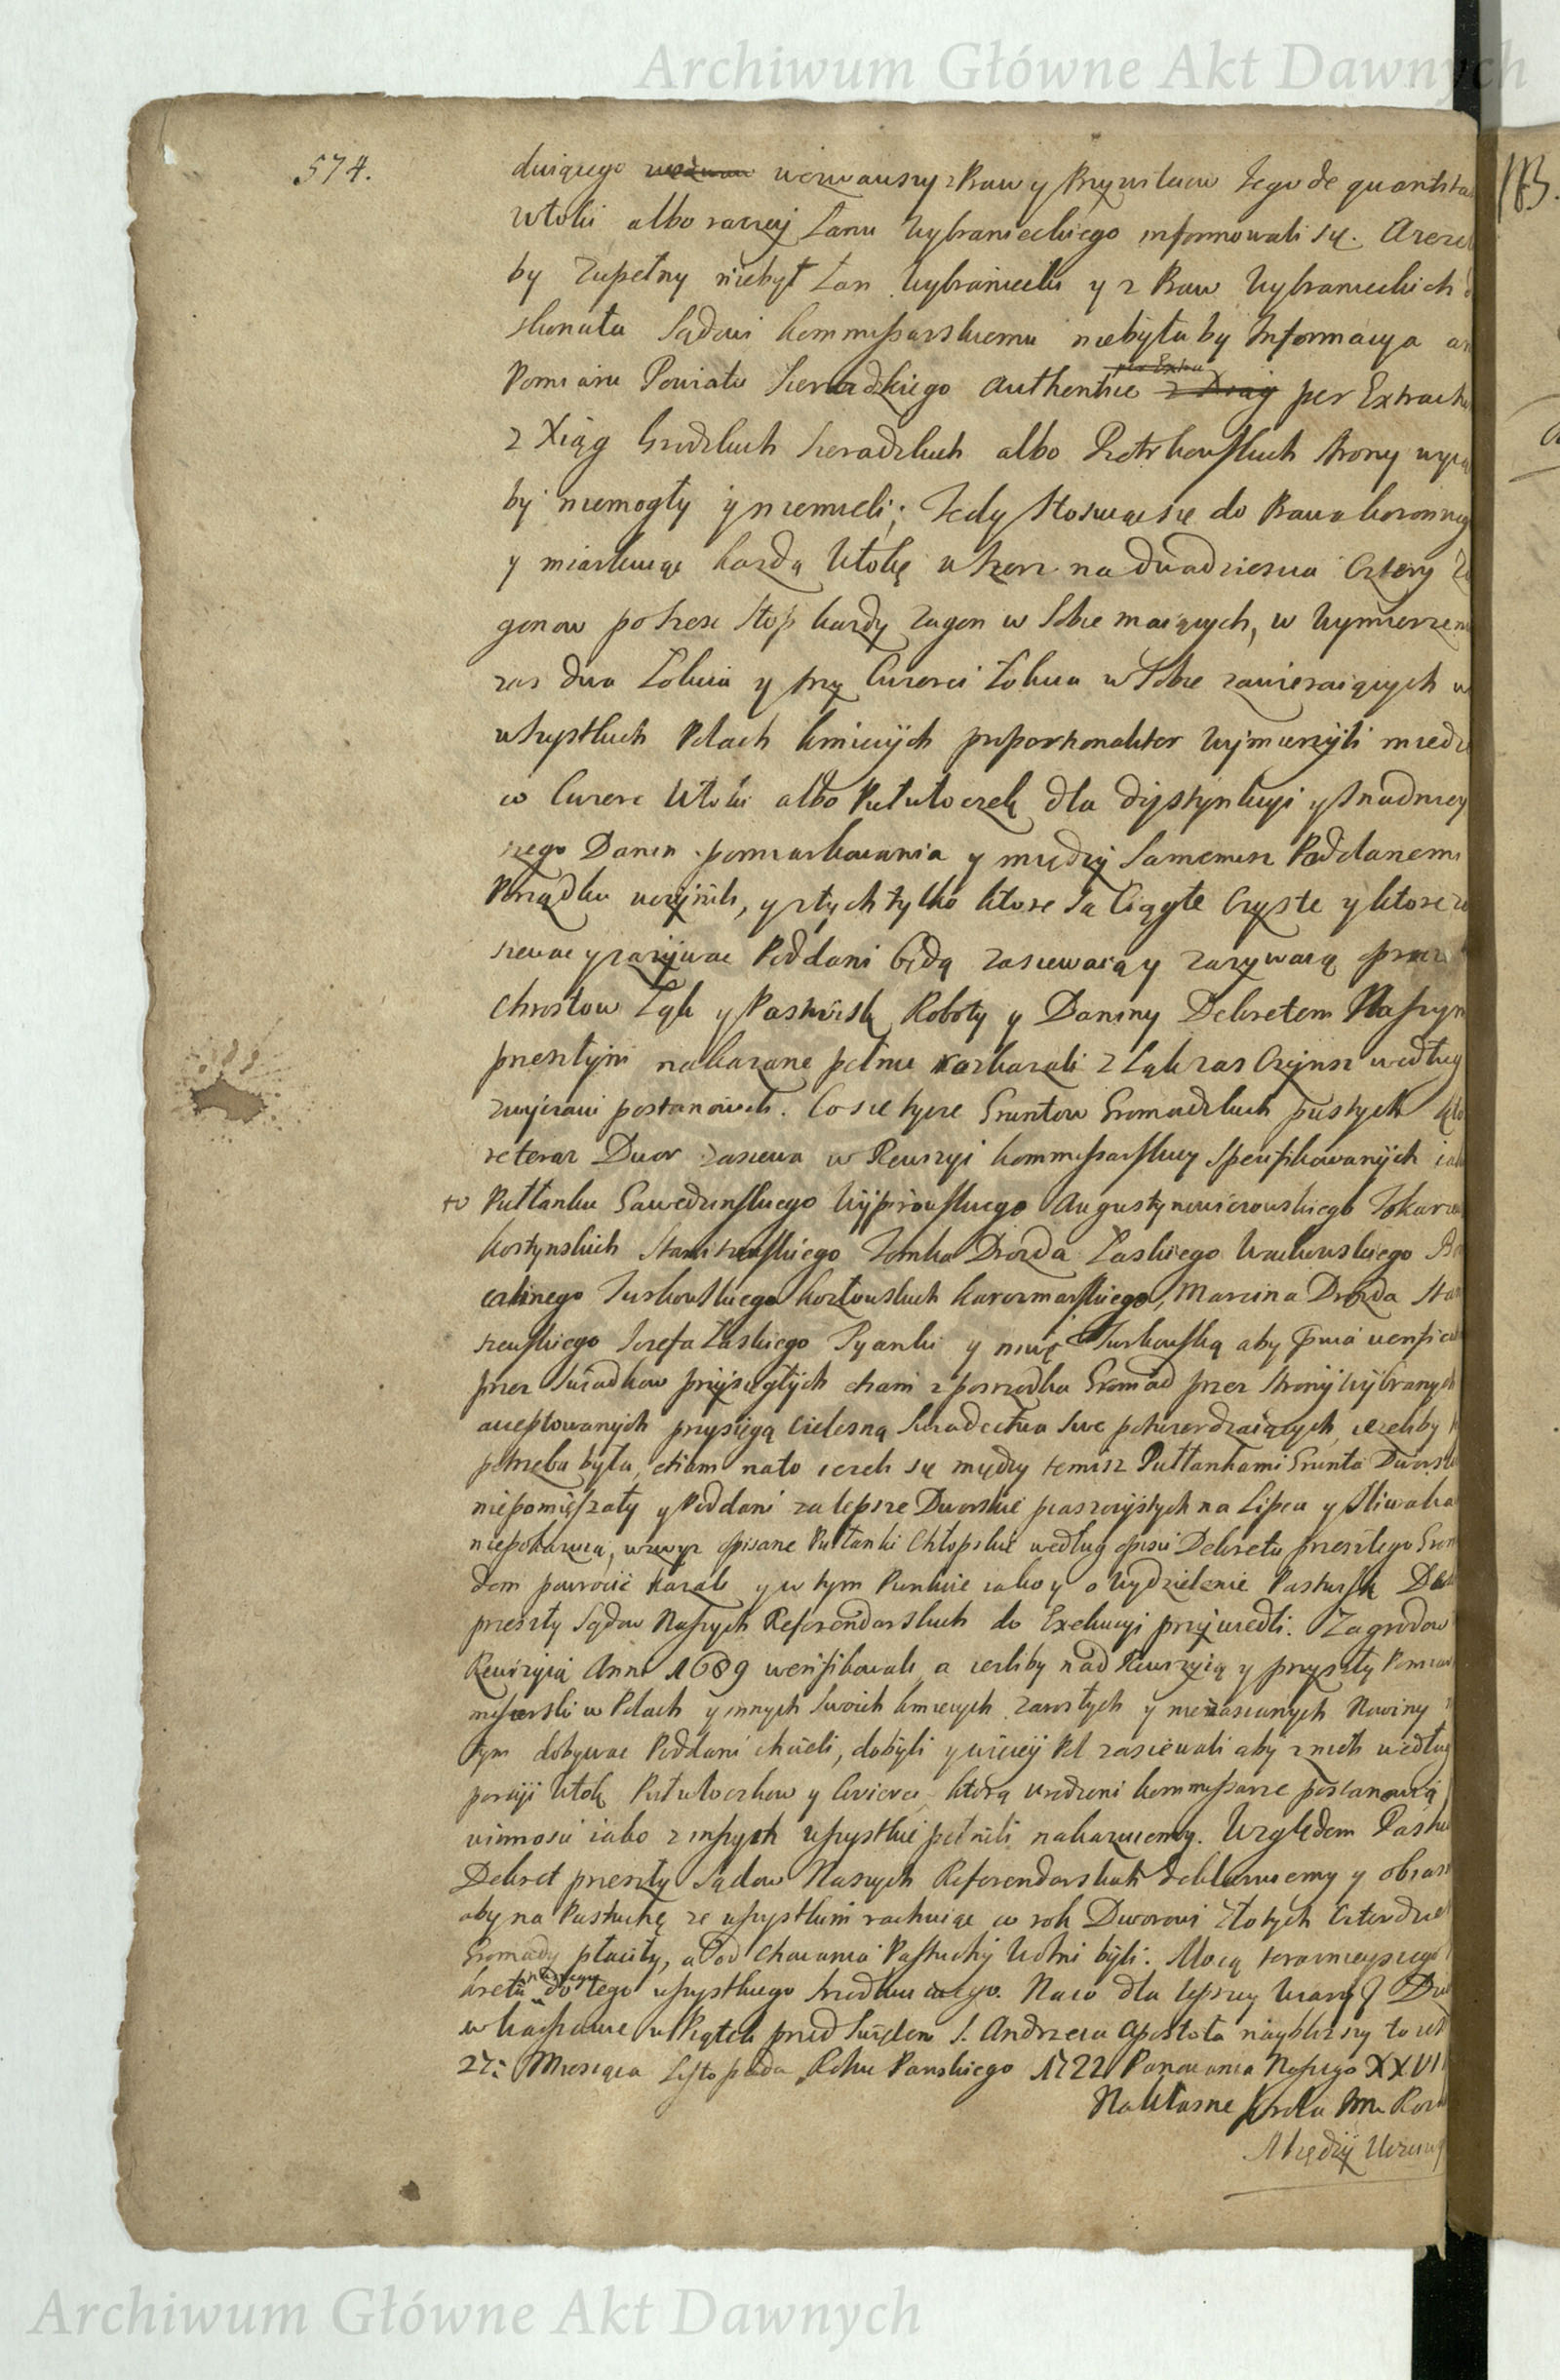 Archiwum Główne Akt Dawnych
574.
183.
dniącego wezwawszy z Praw y Przywileiow tego de quantita
Włoki albo raczej Łanu Wybranieckiego informowali się. A ieże
by zupełny niebył Łan Wybraniecki y z Praw Wybranieckich
skonała Sądowi Kommissarskiemu niebyłaby Informacya an
Pomiaru Powiatu Sieradzkiego authentice per Extract
z Xiąg Grodzkich Sieradzkich albo Piotrkowskich Strony
by niemogły y niemieli; Tedy Stosuiąc się do Prawa koronneg
y miarkuiąc każdą Włokę wszerz na dwadziescia Cztery Za
gonow po szesc Stop każdy zagon w Sobie maiących, w Wymierzeni
zas dwa Łokcia y trzy Cwierci Łokcia w Sobie zawieraiących w
wszystkich Polach kmiecych proportionaliter Wymierzyli miedz
co Cwierc Włoki albo Pułwłoczek dla dystynkcyi y snadniey
szego Danin pomiarkowania y między Samemisz Poddanemi
Porządku uczynili, y z tych tylko ktore są Ciągłe Czyste y ktore za
siewac y zażywac Poddani będą zasiewaią y zazywaią oprocz
Chrostow Łąk y Pastwisk Roboty y Daniny Dekretem Naszym
przeszłym nakazane pełnic rozkazali z Łąk zas Czynsz według
zwyczaiu postanowili. Co sie tycze Gruntow Gromadzkich pustych kto
re teraz Dwor zasiewa w Rewizyi Kommissarskiey Specifikowanych iak
to Pułłanku Gawędzinskiego Augustynowiczowskiego Tokarz
Kostynskich Staniszewskiego Tomka Drozda Łaskiego Wachowskiego
Turkowskiego Kozłowskich Karczmarskiego, Marcina Drozda Sta
szewskiego Iozefa Łaskiego Pyanki y niwę Turkowską aby pilnie
przez Swiadkow przysięgłych etiam z posrzodku Gromad przez Strony wybranych
acceptowanych przysięgą cielesną Swiadectwa Swe potwierdzaiących, ieżeliby
potrzeba była, etiam na to ieżeli się między temisz Pułłankami Grunta Dworsk
niepomięszały y Poddani za lepsze Dworskie piaszczystych na Lipcu y Sliwaka
niepokazuią, wzwyż opisane Pułłanki Chłopskie według opisu Dekretu przeszłego Grom
dom powrocić kazali y w tym Punkcie iako y o wydzielenie Pastwisk De
przeszły Sądow Naszych Referendarskich do Exekucyi przywiedli. Zagrodow
Rewizyią Anni 1689 weryfikowali, a ieśliby nad Rewizyią y przyszły Pomiar
missarski w Polach y innych Swoich kmiecych zarosłych y niezasianych Nowiny
tym dobywac Poddani chcieli, dobyli y więcey Pol zasiewali aby z nich według
porcyi Włok Pułwłoczkow y Cwierci, którą urodzeni Kommissarze postanowią
winności iako z inszych wszystkie pełnili nakazuiemy. Względem Pastu
Dekret przeszły Sądow Naszych Referendarskich deklaruiemy y obias
aby na Pastuchę ze wszystkim rachuiąc co rok Dworowi złotych Czterdzie
Gromady płaciły, a od chowania Pastuchy Wolni byli. Mocą teraznieyszego
kretu naszego do tego wszystkiego Srzodku całego. Na co dla lepszey Wiary Dan
w Warszawie w Piątek przed Swiętem S. Andrzeia Apostoła naybliższy to iest
27: Miesiąca Listopada Roku Panskiego 1722 Panowania Naszego XXVI
Na Własne Krola Im
Między
Archiwum Główne Akt Dawnych